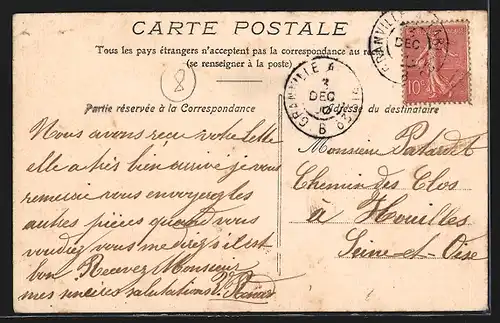 CARTE POSTALE
Tous les pays étrangers n'acceptent pas la correspondance au
(se renseigner à la poste)
GRANVILLE A PARIS
DEC
B
GRANVILLE
DEC
10
8
Partie réservée à la Correspondance
adresse du destinataire
Nous avons reçu votre lette
elle a très bien arrivé je vous
remercie vous envoyer les
autres pièces quand vous
voudrez vous me direz s'il est
bon Recevez Monsieur
mes sincères salutations
Monsieur
Chemin des Clos
à Houilles
Seine-et-Oise